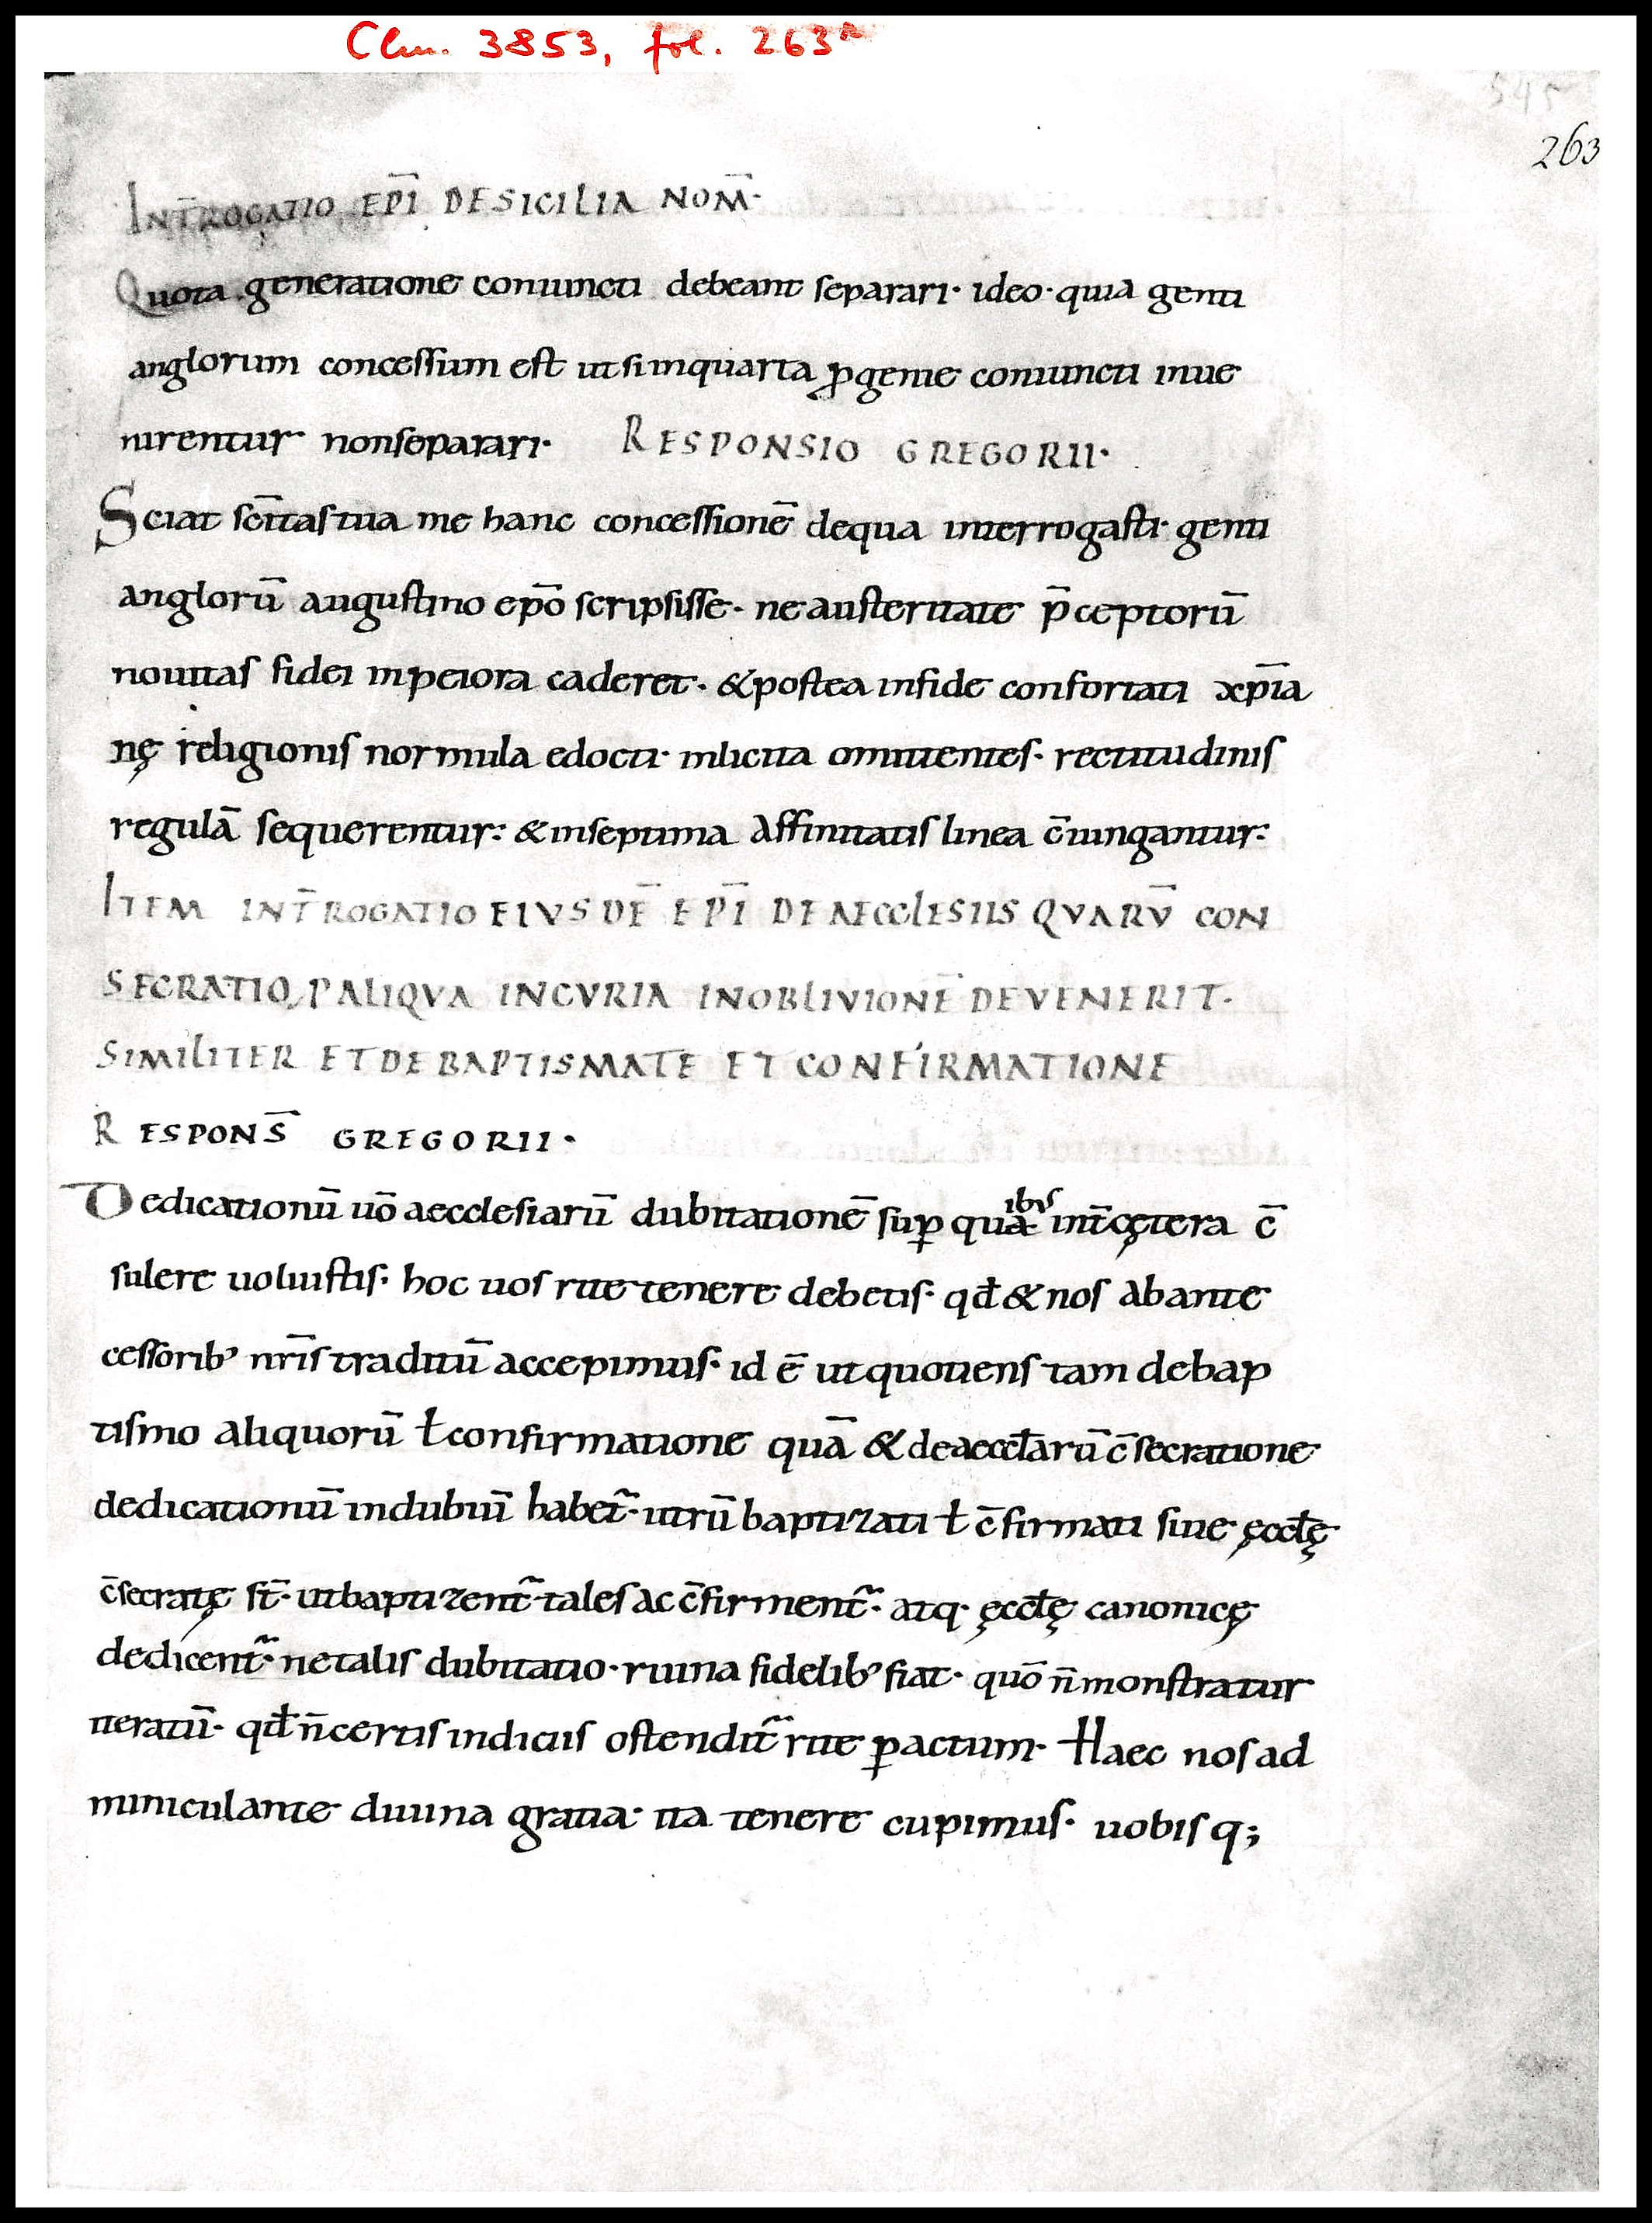 Clm. 3853, fol. 263r
545
263
INT̄ROGATIO EPĪ DESICILIA NOM̄·
Quota generatione coniuncti debeant separari· ideo· quia genti
anglorum concessum est utsi inquarta ꝓgenie coniuncti inue
nirentur nonseparari· RESPONSIO GREGORII·
Sciat sc̄itas tua me hanc concessionē dequa interrogasti· genti
anglorū augustino ep̄o scripsisse· ne austeritate p̄ceptorū
nouitas fidei inpeiora caderet· &postea infide confortati xp̄ia
nę religionis normula edocti· inlicita omittentes· rectitudinis
regulā sequerentur: &inseptima affinitatis linea c̄iungantur:
ITEM INT̄ROGATIO EIVSDĒ EPĪ DE AECCLESIIS QVARV̄ CON
SECRATIO, P ALIQVA INCVRIA INOBLIVIONĒ DEVENERIT·
SIMILITER ET DE BAPTISMATE ET CONFIRMATIONE
RESPONS̄ GREGORII·
Dedicationū uō aecclesiarū dubitationē suꝑ qua ibus int̄ cętera c̄
sulere uoluistis· hoc uos rite tenere debetis· qđ & nos abante
cessorib' nr̄is traditū accepimus· id ē ut quotiens tam debap
tismo aliquorū ł confirmatione quā & deaeccłarū c̄secratione
dedicationū indubiū habet̄· utrū baptizati ł c̄firmati siue ęccłę
c̄secratę st̄· utbaptizent̄ tales ac c̄firment̄· atq· ęccłę canonicę
dedicent̄· netalis dubitatio· ruina fidelib' fiat· quō n̄ monstratur
iteratū· qđ n̄ certis indiciis ostendit̄ rite ꝑactum· Haec nos ad
miniculante diuina gratia· ita tenere cupimus· uobisq;